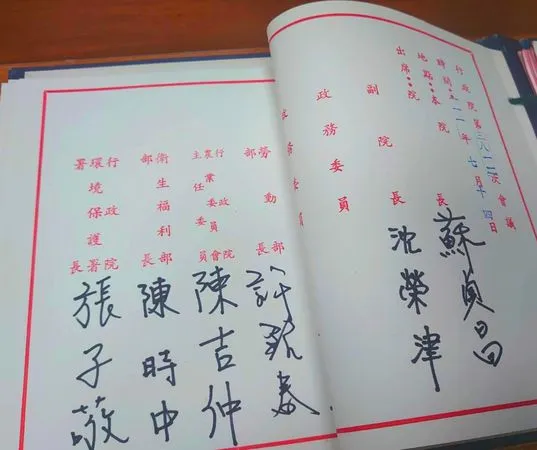 行政院第三八一一次會議
時間:一一一年七月十四日
地點:本院
出席:院長 蘇貞昌
副院長 沈榮津
政務委員
勞動部部長 許銘春
行政院農業委員會主任委員 陳吉仲
衛生福利部部長 陳時中
行政院環境保護署署長 張子敬